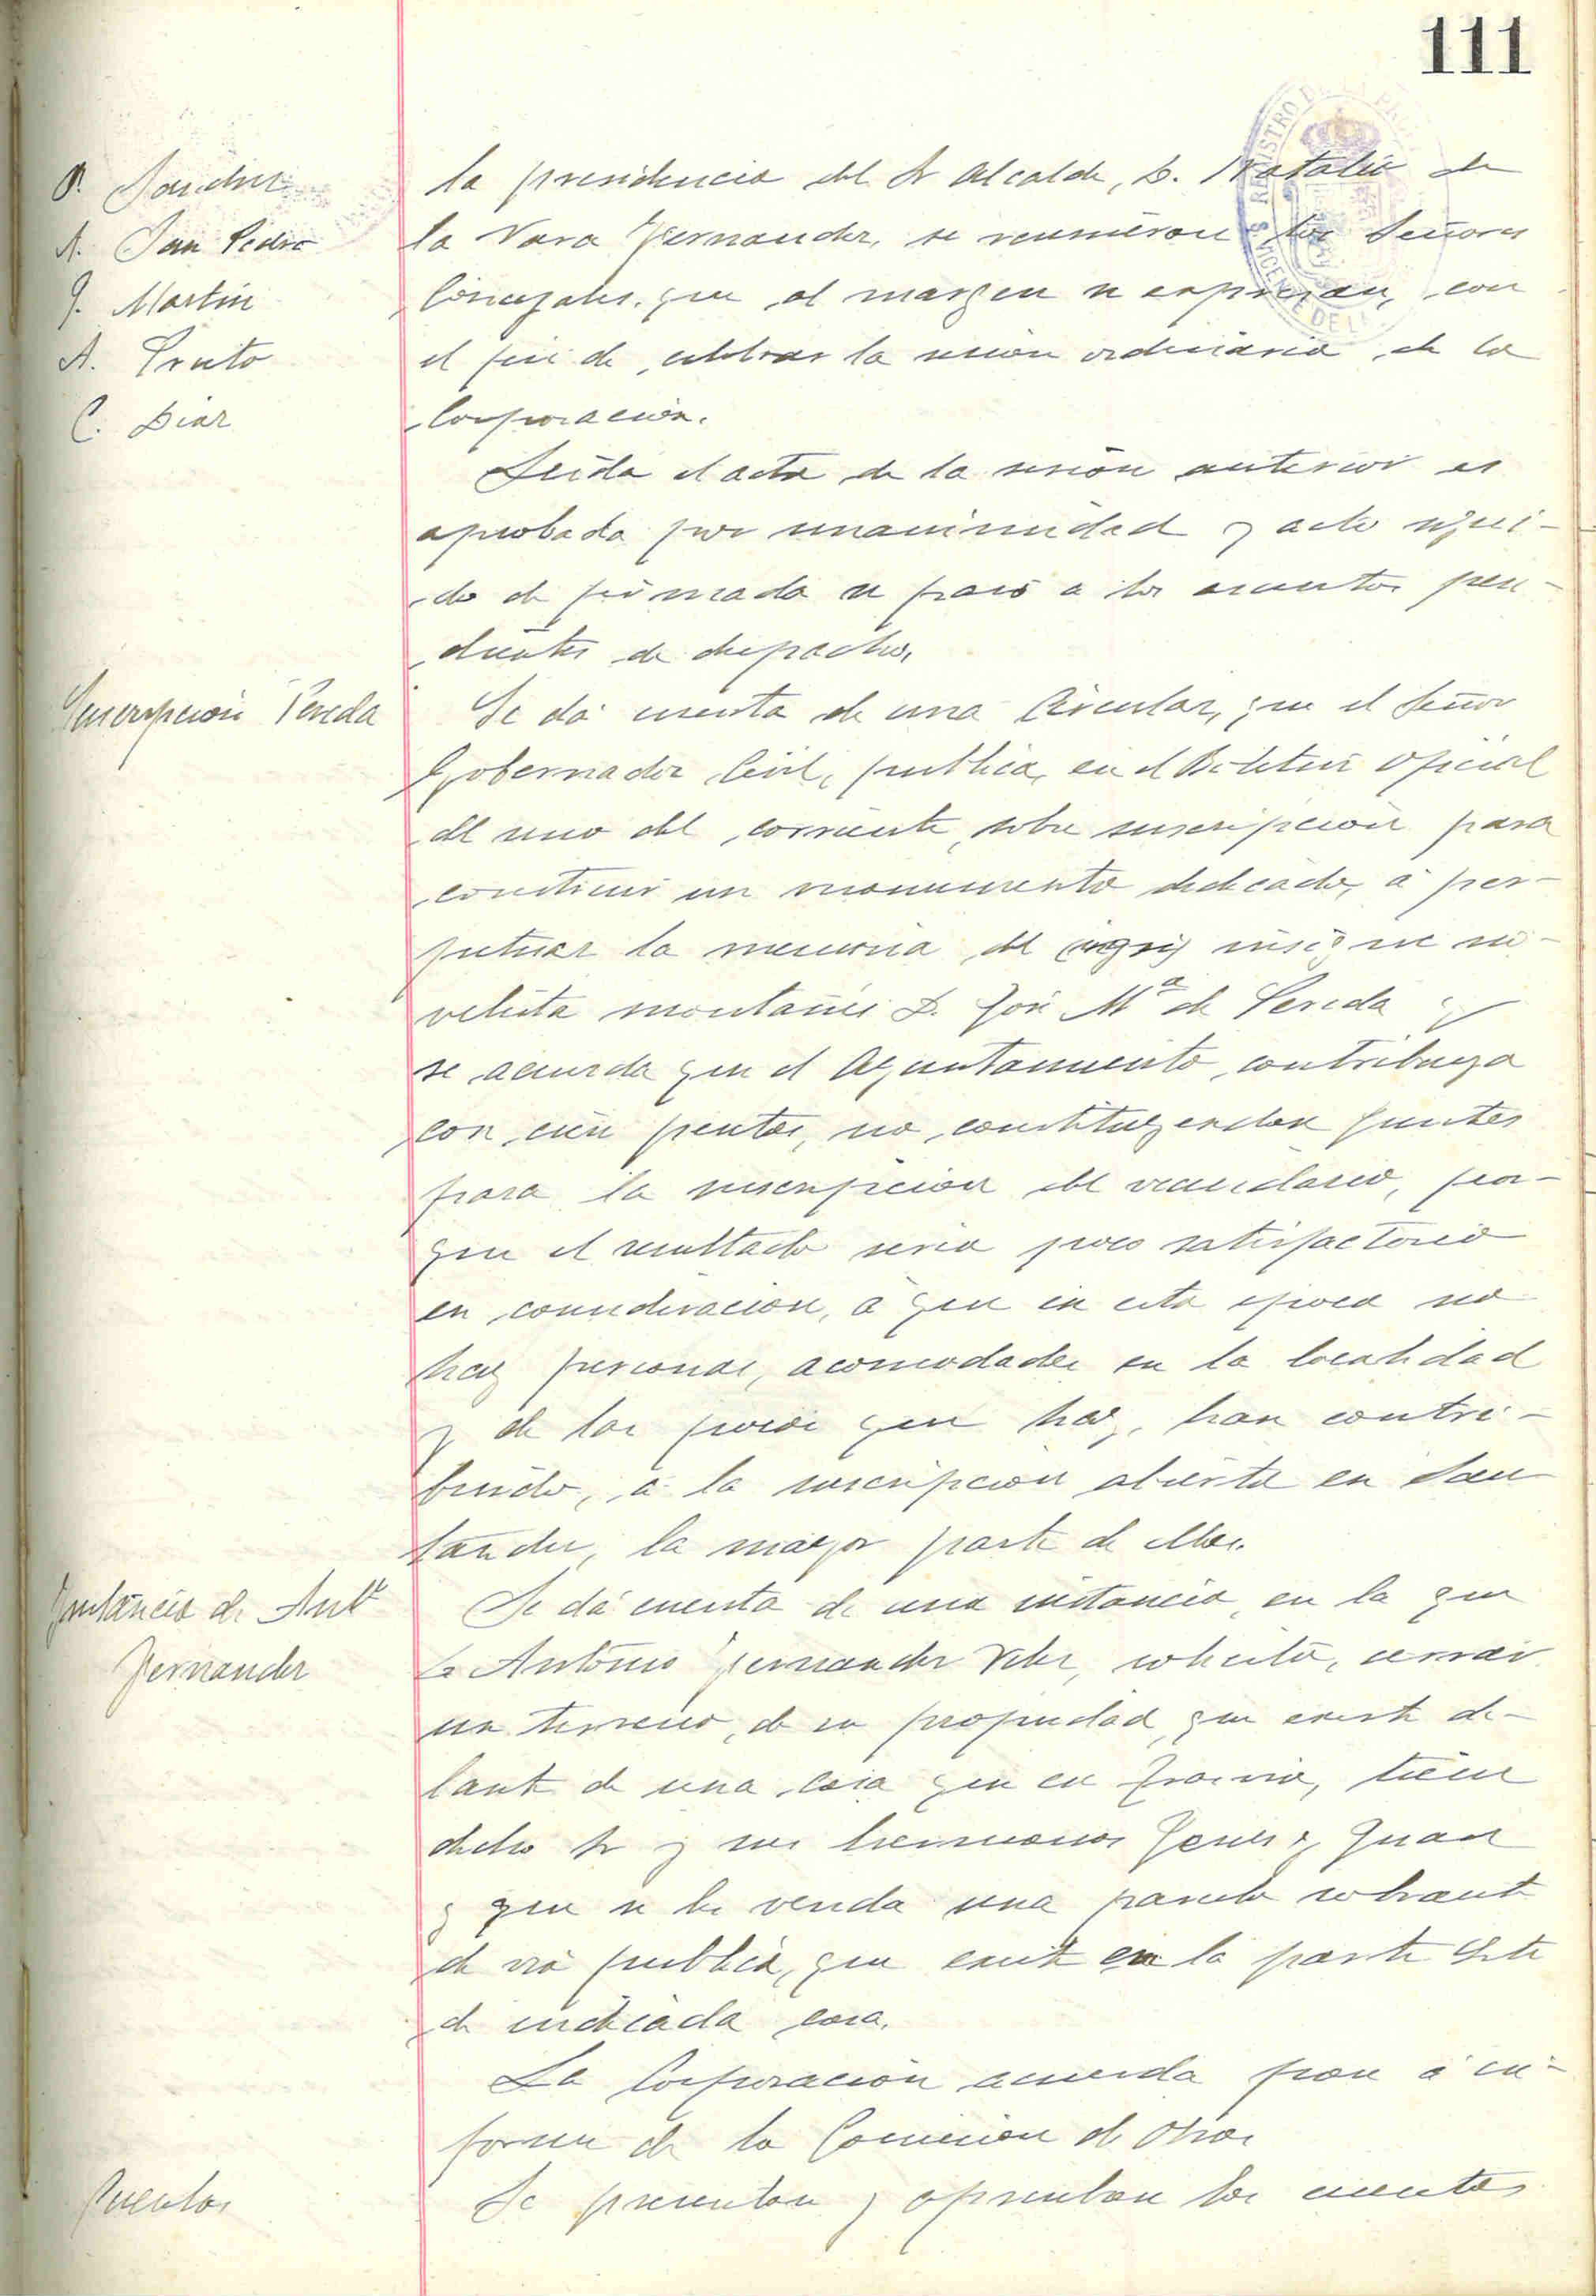 111
P. Sanchez
A. San Pedro
J. Martin
A. Prieto
C. Diaz
la presidencia del Sr Alcalde, D. Natalio de
la Vara Fernandez, se reunieron los Señores
Concejales, que al margen se expresan, con
el fin de celebrar la sesion ordinaria de la
Corporacion.
Leida el acta de la sesion anterior es
aprobada por unanimidad y acto segui-
do de firmada se pasó a los asuntos pen-
dientes de despacho,
Suscripcion Pereda
Se dá cuenta de una Circular, que el Señor
Gobernador Civil, publica, en el Boletin Oficial
del uno del corriente, sobre suscripcion para
construir un monumento dedicado, á per-
petuar la memoria del insigne no-
velista montañes D. José Mª de Pereda y
se acuerda que el Ayuntamiento, contribuya
con cien pesetas, no constituyendose juntas
para la suscripcion del vecindario, por-
que el resultado seria poco satisfactorio
en consideracion, á que en esta epoca no
hay personas, acomodadas en la localidad
y de las pocas que hay, han contri-
buido, á la suscripcion abierta en San
tander, la mayor parte de ellas.
Instancia de Antº
Fernandez
Se dá cuenta de una instancia, en la que
D. Antonio Fernandez Velez, solicita, cerrar
un terreno, de su propiedad, que existe de-
lante de una casa que en proindiviso, tiene
dicho Sr y sus hermanos Jenaro y Juan
y que se le venda una parcela sobrante
de via publica, que existe en la parte Este
de indicada casa.
La Corporacion acuerda pase á in-
forme de la Comision de Obras
Cuentas
Se presentan y aprueban las cuentas